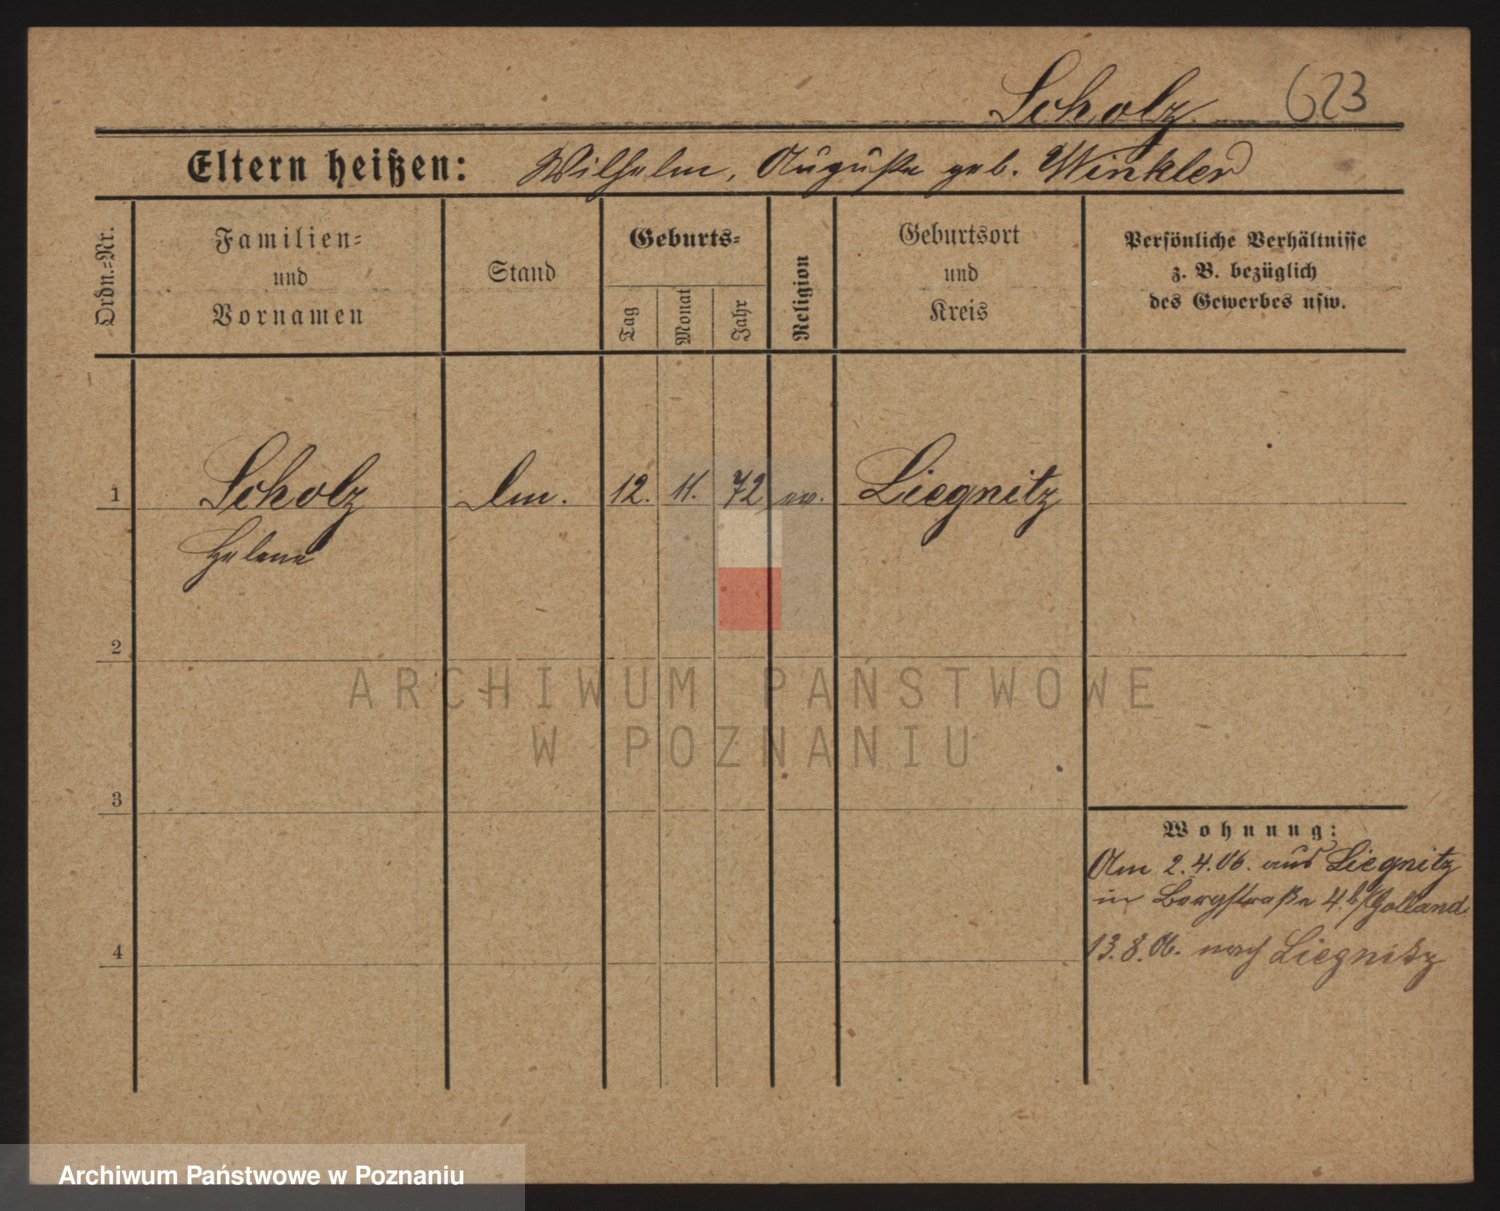 Scholz. 623
Eltern heißen: Wilhelm, Auguste geb. Winkler
Ordn.-Nr.
Familien-
und
Vornamen
Stand
Geburts-
Tag
Monat
Jahr
Religion
Geburtsort
und
Kreis
Persönliche Verhältnisse
z. B. bezüglich
des Gewerbes usw.
1 Scholz 12. 11. 72 ev. Liegnitz
Helene
2
ARCHIWUM PAŃSTWOWE
W POZNANIU
3
Wohnung:
Am 2.4.06. aus Liegnitz
in Bergstraße 4.
4
13.8.06. nach Liegnitz
Archiwum Państwowe w Poznaniu